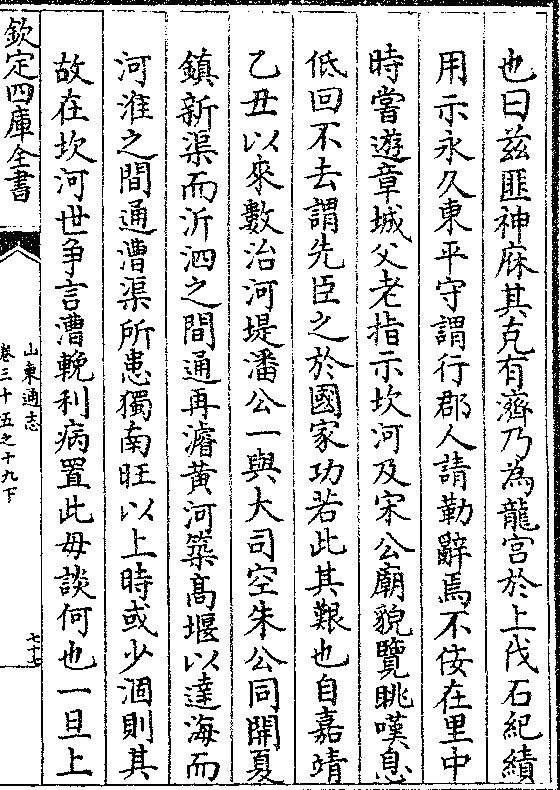 也曰兹匪神庥其克有濟乃為龍宫於上伐石紀績
用示永久東平守謂行郡人請勒辭焉不佞在里中
時嘗遊章城父老指示坎河及宋公廟貌覽眺嘆息
低回不去謂先臣之於國家功若此其艱也自嘉靖
乙丑以來數治河堤潘公一與大司空朱公同開夏
鎮新渠而沂泗之間通再濬黄河築髙堰以達海而
河淮之間通漕渠所患獨南旺以上時或少涸則其
故在坎河世争言漕輓利病置此毋談何也一旦上
欽定四庫全書
山東通志
卷三十五之十九下
七十七